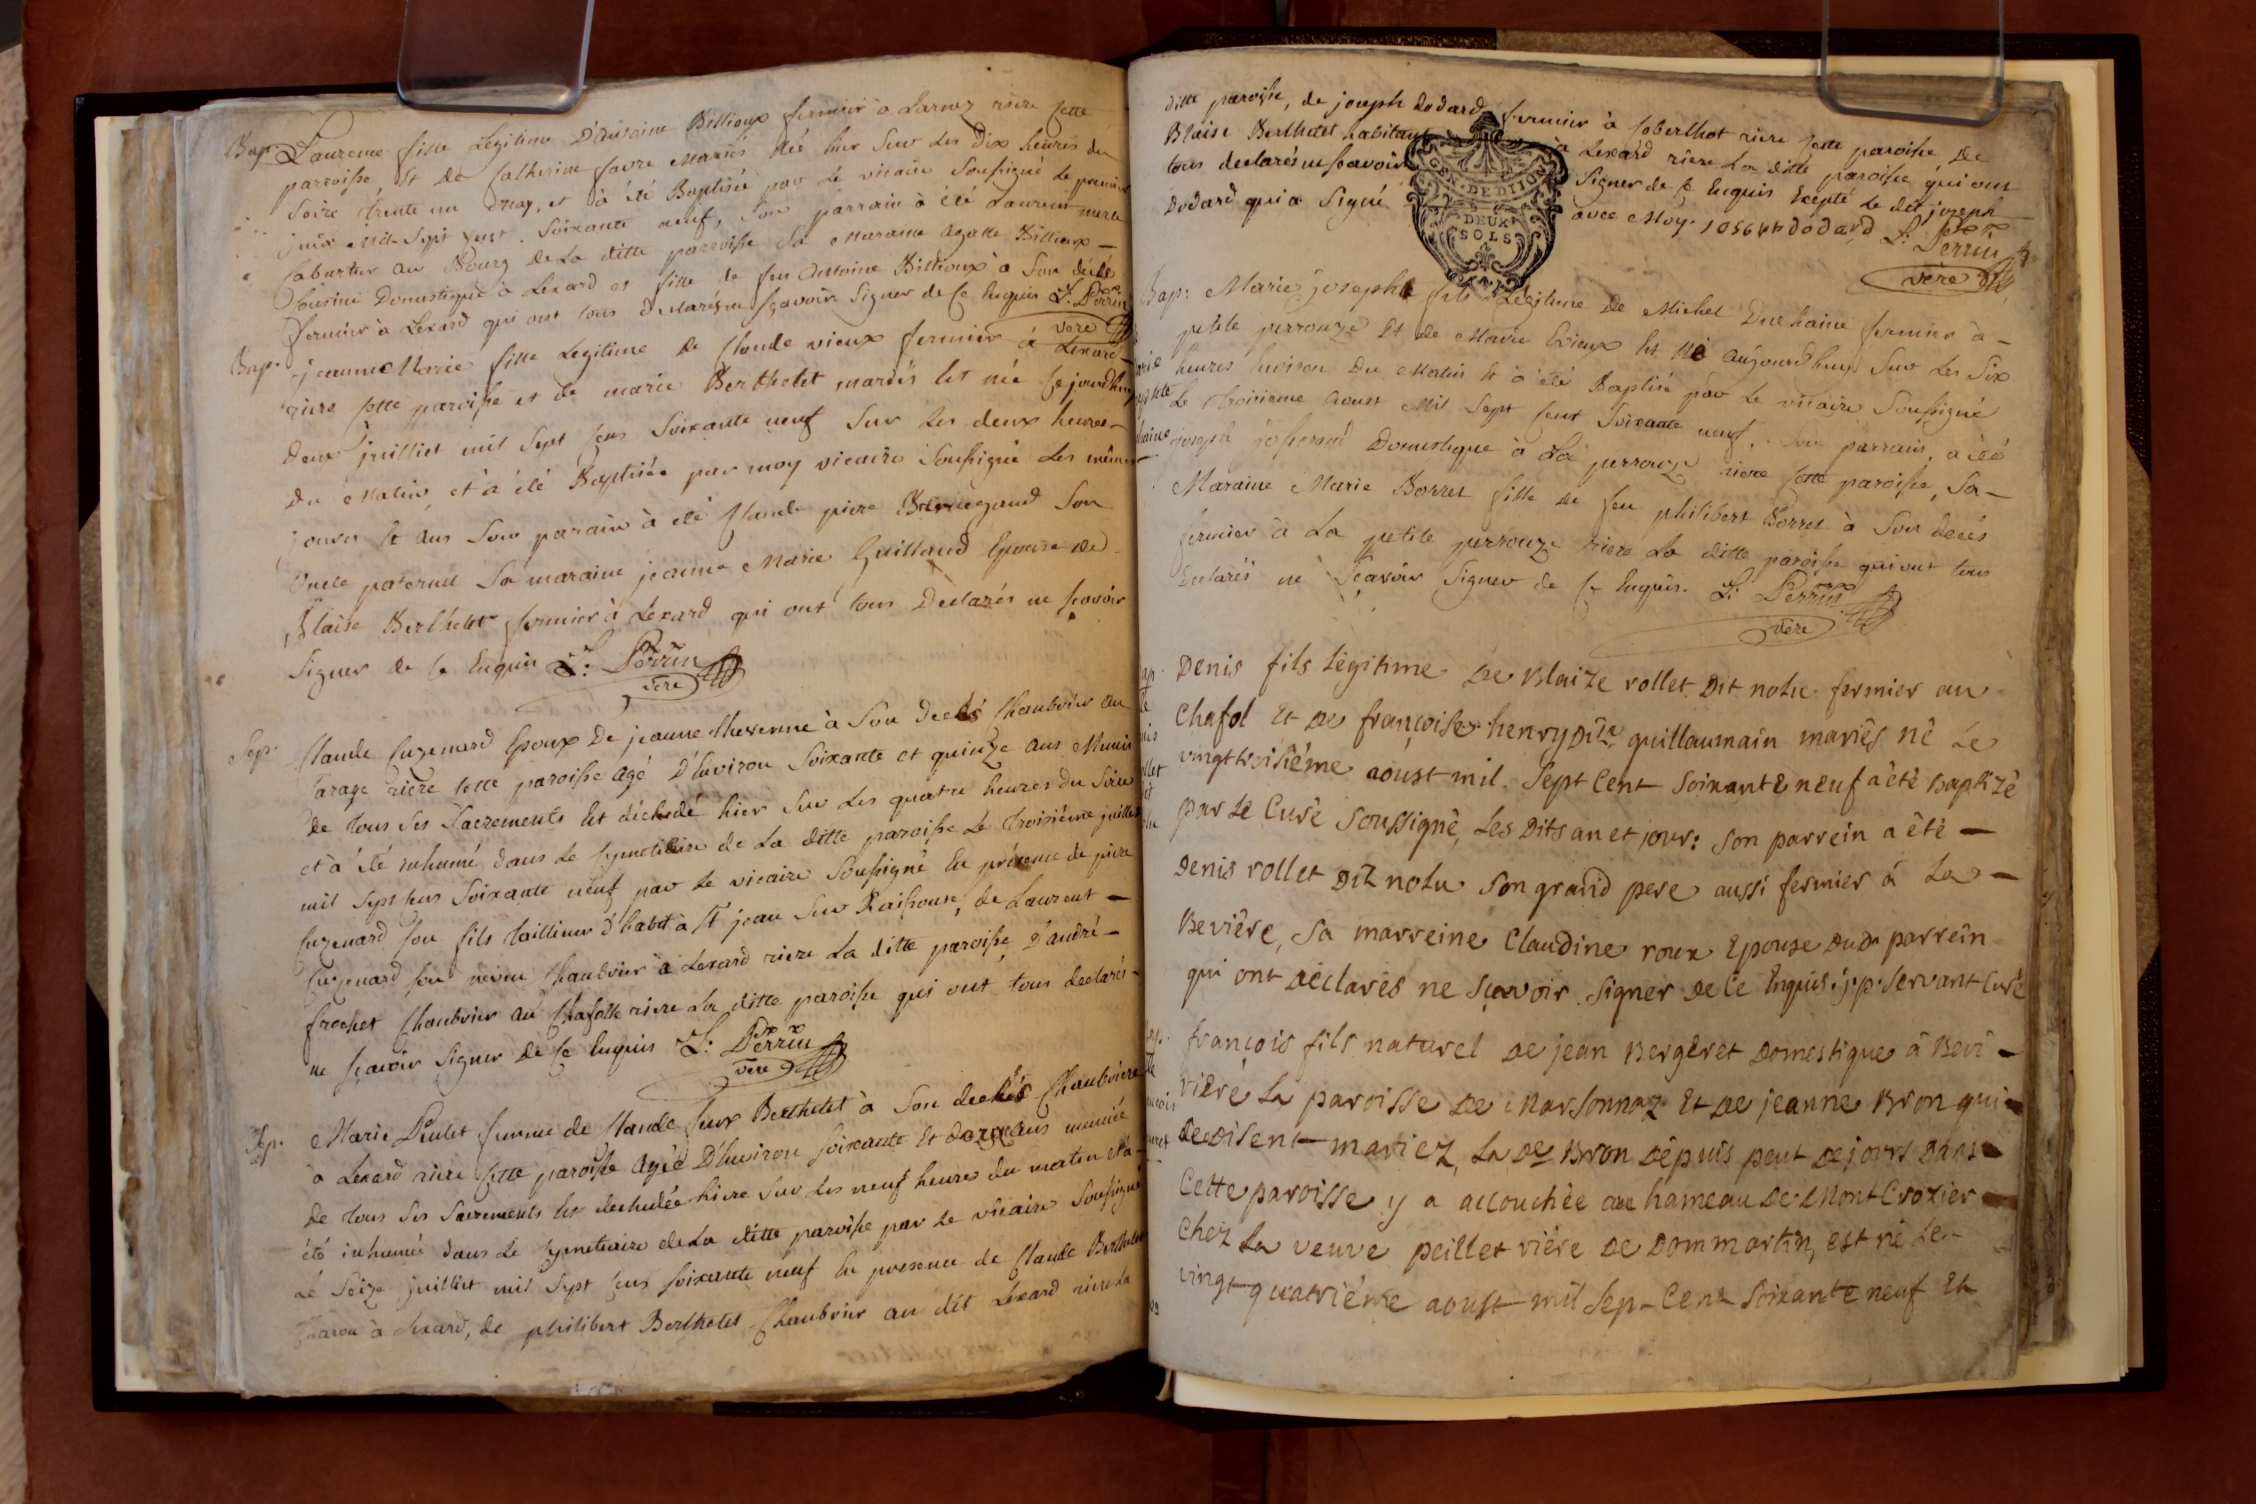 Bap. Laurence fille Légitime D'Antoine Billioux fermier à Larnez riere Cette
paroisse, Et de Catherine favre Mariés née hier Sur Les Dix heures du
Soire trente un may, et à été Baptisée par Le vicaire Soussigné Le premier
juin Mil Sept Cent Soixante neuf, Son parrain à été Laurent
au Bourg de La ditte paroisse Sa Maraine agatte Billioux
Domestique à Lexard et fille de feu Antoine Billioux à Son décés
fermier à Lexard qui ont tous declarés ne sçavoir Signer de Ce Enquis L: Perrin
vere
Bap. jeanne Marie fille Legitime de Claude vieux fermier à Lexard
riere Cette paroisse et de marie Berthelet mariés Est née Ce jourdhuy
Deux juilliet mil Sept Cens Soixante neuf Sur Les deux heures
du Matin, et à été Baptisée par moy vicaire Soussigné Les mêmes
jours Et ans Son parain à été Claude piere Son
Oncle paternel Sa maraine jeanne Marie Guillaud Epouse de
Blaise Berthelet fermier à Lexard qui ont tous Declarés ne sçavoir
Signer de Ce Enquis L: Perrin
vere
Sep. Claude Epoux De jeanne thevenne à Son decés Chanbrier au
Tarage riere Cette paroisse agé D'Environ Soixante et quinze ans Munis
de tous Ses Sacrements Est décedé hier Sur Les quatre heures Du Soire
et à été inhumé dans Le Cymetiere de La ditte paroisse Le troisiéme juillet
mil Sept Cens Soixante neuf par Le vicaire Soussigné En présence de piere
Son fils taillieur d'habit à St jean Sur Raissouse, de Laurent
Son neveu Chanbrier à Lexard riere La ditte paroisse, D'andré
frochet Chanbrier au Chafolle riere La ditte paroisse qui ont tous declarés
ne sçavoir Signer de Ce Enquis L: Perrin
vere
Sep. Marie femme de Claude Berthelet à Son decés Chanbriere
à Lexard riere Cette paroisse agée D'Environ soixante Et ans munie
de tous Ses Sacrements Est decedée hiere Sur Les neuf heures du matin Et à
été inhumée dans Le Cymetiere de La ditte paroisse par Le vicaire Soussigné
Le Seize juilliet mil Sept Cens soixante neuf En presence de Claude Berthelet
à Lexard, de philibert Berthelet Chanbrier au dit Lexard riere La
ditte paroisse, de joseph Dodard fermier à Coberthot riere Cette paroisse, De
Blaise Berthelet habitant à Lexard riere La ditte paroisse qui ont
tous declarés ne sçavoir Signer de Ce Enquis Excepté Le dit joseph
Dodard qui a Signé avec Moy. dodard L: Perrin
vere
GEN. DE DIJON
DEUX
SOLS
Bap: Marie joseph fils Legitime De Michel Duchaine fermier à
petite perrouze Et de Marie Est né aujourd'huy Sur Les Six
heures Du Matin Et à été Baptisé par Le vicaire Soussigné
Le troisieme aoust Mil Sept Cent Soixante neuf. Son parrain, a été
joseph Domestique à La perrouze riere Cette paroisse, Sa
Maraine Marie Borret fille de feu philibert Borret à Son decés
fermier à La petite perrouze riere La ditte paroisse qui ont tous
Declarés ne Sçavoir Signer de Ce Enquis. L: Perrin
vere
Denis fils Légitime De Blaize rollet Dit nolu fermier au
Chafol Et De françoise henry Dite guillaumain mariés né Le
vingttroisiéme aoust mil Sept Cent Soixante neuf a été baptizé
par Le Curé Soussigné, Les Dits an et jour: Son parrein a été
Denis rollet Dit nolu Son grand pere aussi fermier à La
Beviére, Sa marreine Claudine roux Epouse Dudt parrein
qui ont déclarés ne Sçavoir Signer De Ce Enquis. j:p: Servant Curé
françois fils naturel De jean Bergeret Domestique à Bevi
viére La paroisse De Marsonnaz Et De jeanne Bron qui
Se Disent mariez, La De Bron Depuis peut De jours Dans
Cette paroisse y a accouchée au hameau De Mont Crozier
Chez La veuve peillet riére De Dommartin, est né Le
vingt quatriéme aoust mil Sept Cent Soixante neuf Et